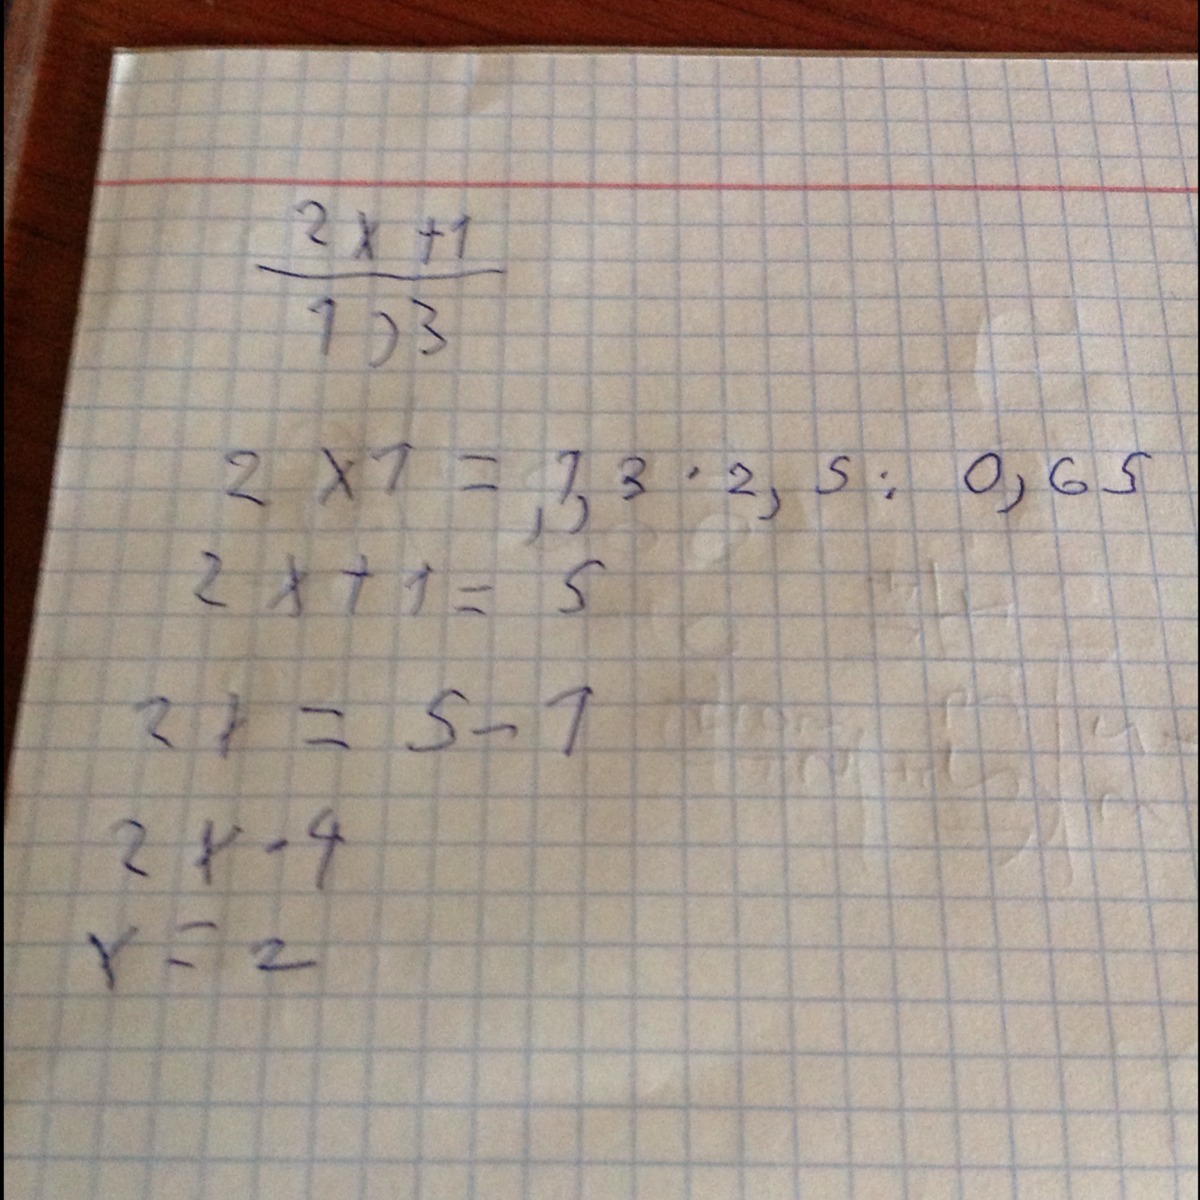 2x+1
1,3
2x1 = 1,3 · 2,5 : 0,65
2x+1 = 5
2x = 5-1
2x - 4
x = 2